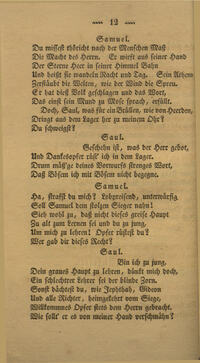 12
Samuel.
Du missest thöricht nach der Menschen Maß
Die Macht des Herrn. Er wirft aus seiner Hand
Der Sterne Heer in seiner Himmel Bahn
Und heißt sie wandeln Nacht und Tag. Sein Athem
Zerstäubt die Welten, wie der Wind die Spreu.
Er hat dieß Volk geschlagen und das Wort,
Das einst sein Mund zu Mose sprach, erfüllt.
Doch, Saul, was für ein Brüllen, wie von Heerden,
Dringt aus dem Lager her zu meinem Ohre?
Du schweigst?
Saul.
Geschehn ist, was der Herr gebot,
Und Dankesopfer rüst' ich in dem Lager.
Drum mäß'ge deines Vorwurfs strenges Wort,
Daß Bösem ich mit Bösem nicht begegne.
Samuel.
Ha, strafst du mich? Lobpreisend, unterwürfig
Soll Samuel dem stolzen Sieger nahn!
Sieh wohl zu, daß nicht dieses greise Haupt
Zu alt zum Lernen sei und du zu jung,
Um mich zu lehren! Opfer rüstest du?
Wer gab dir dieses Recht?
Saul.
Bin ich zu jung,
Dein graues Haupt zu lehren, dünkt mich doch,
Ein schlechter Lehrer sei der blinde Zorn.
Sonst dächtest du, wie Jephthah, Gideon
Und alle Richter, heimgekehrt vom Siege,
Willkommnes Opfer stets dem Herrn gebracht.
Wie sollt' er es von meiner Hand verschmähn?